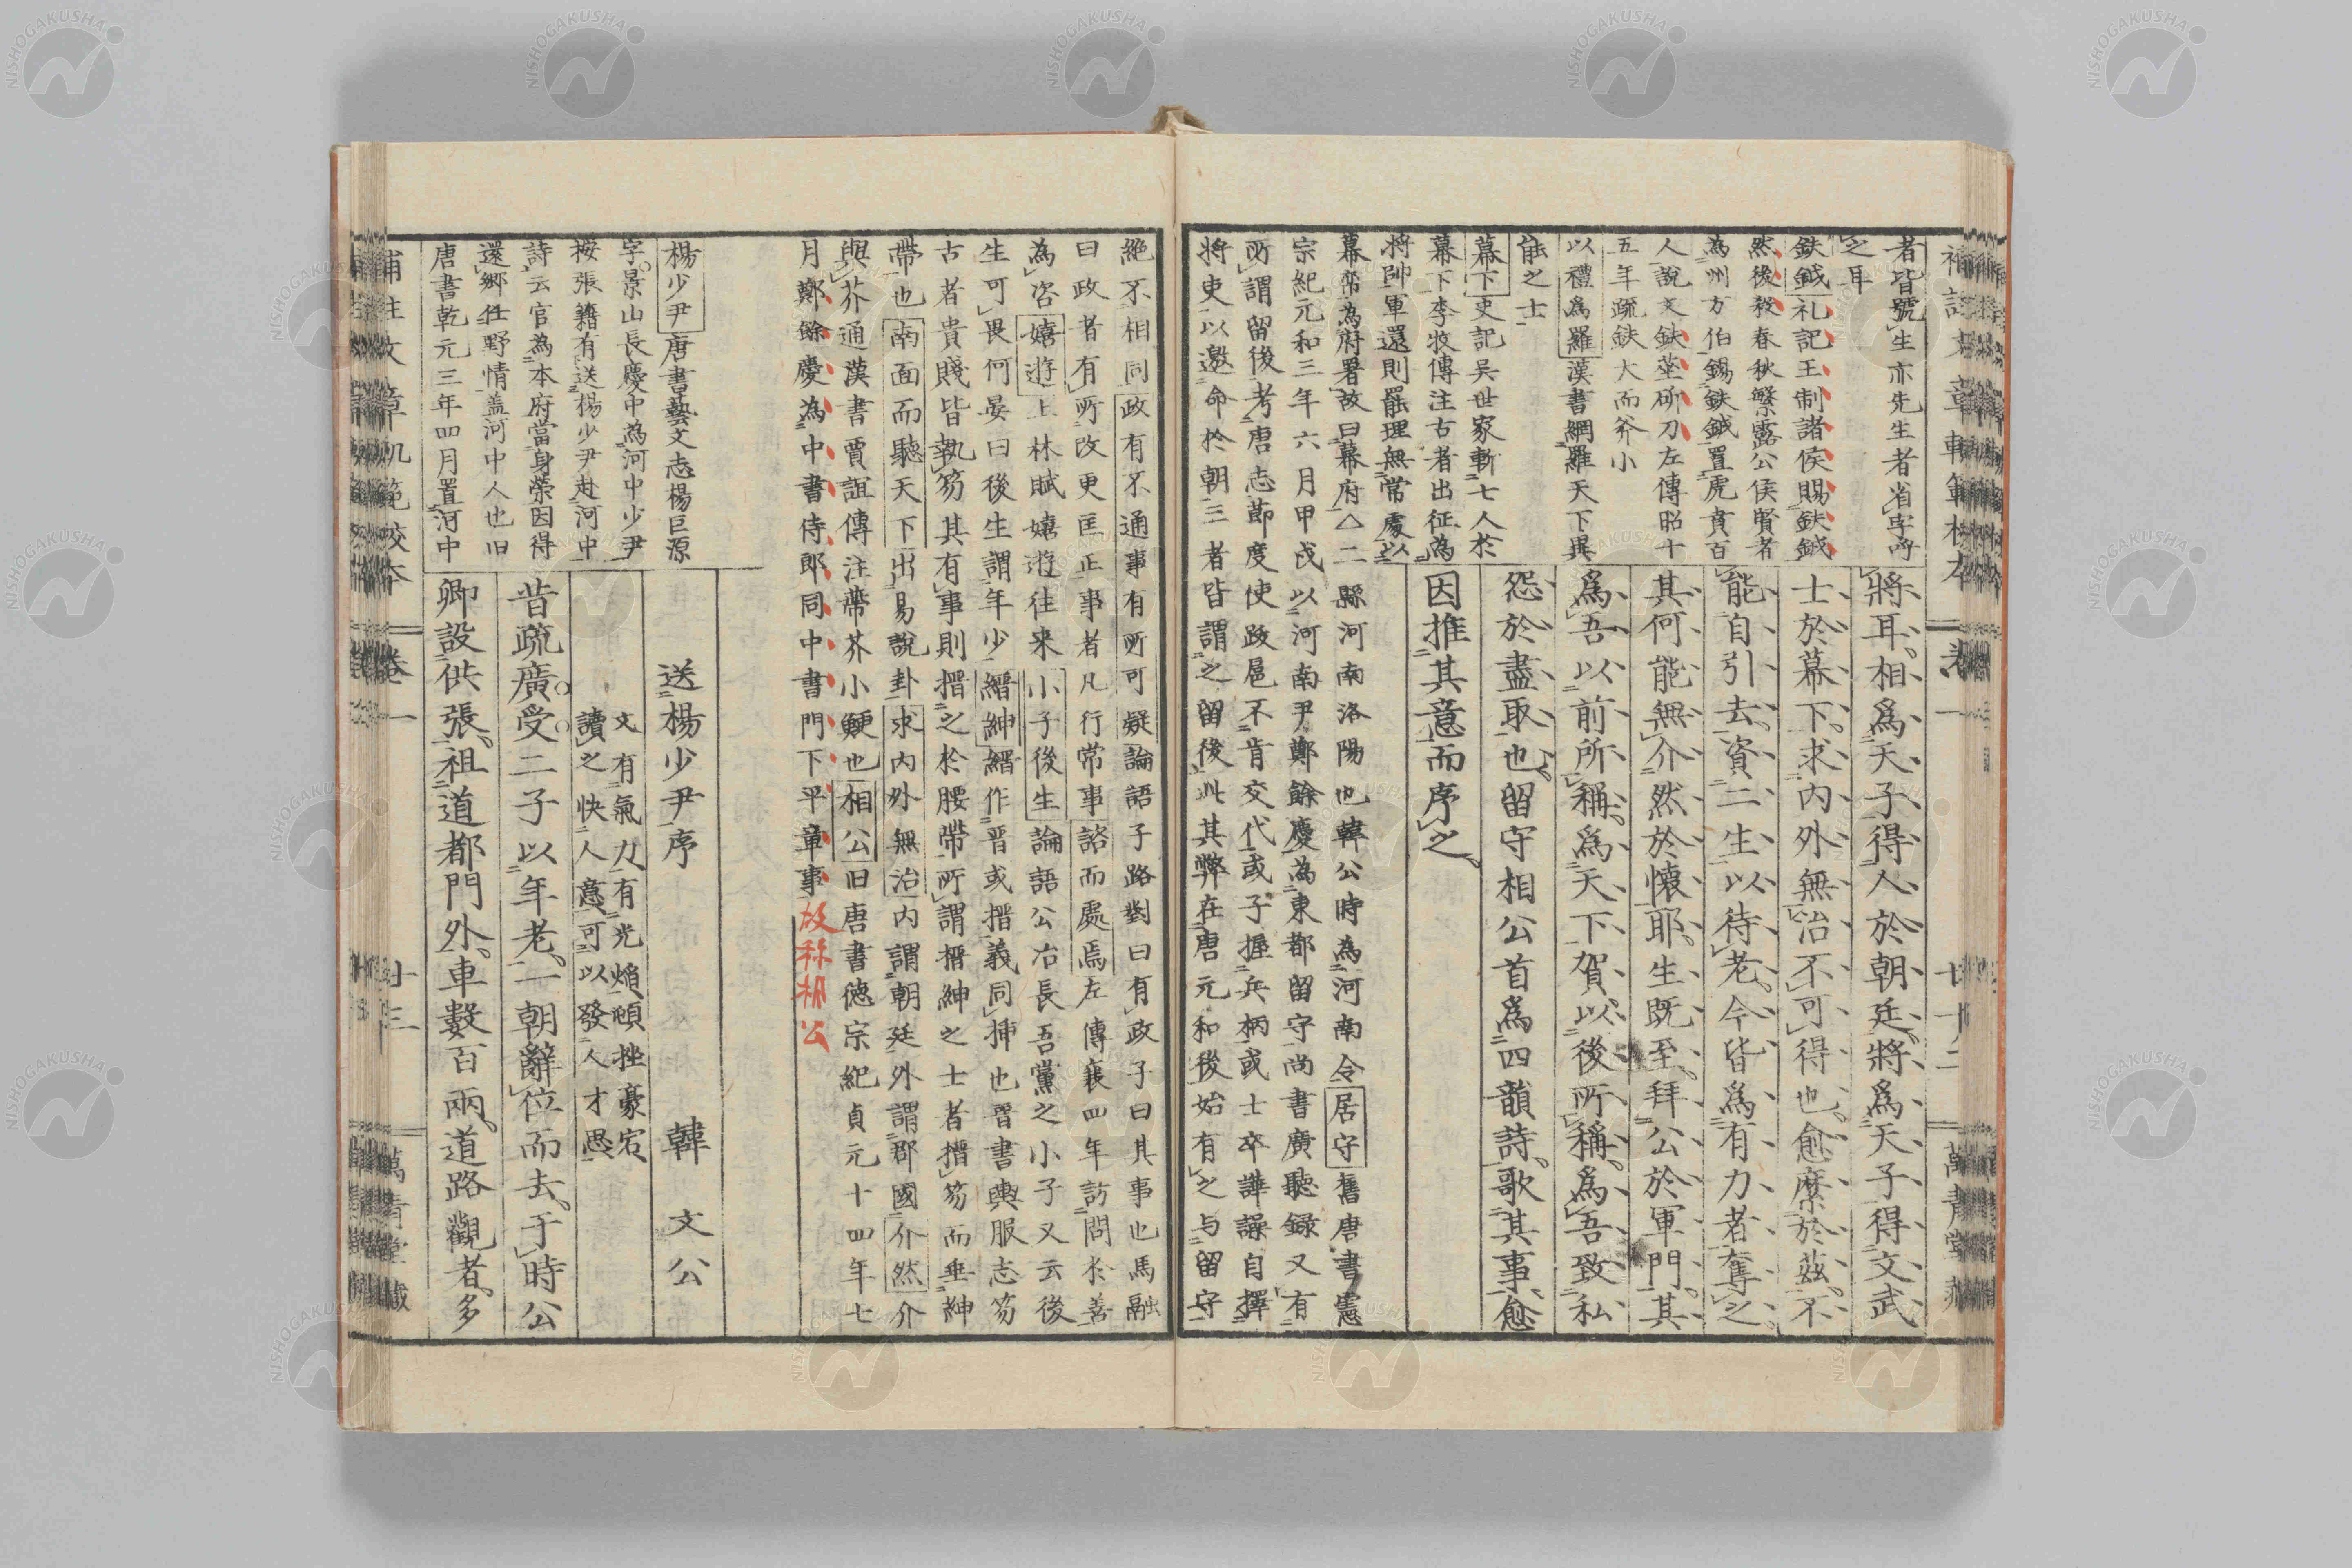 者皆號生亦先生者省字所
之耳
鈇鉞礼記王制諸侯賜鈇鉞
然後殺春秋繁露公侯賢者
為州方伯錫鈇鉞置虎賁百
人說文鈇莝斫刀左傳昭十
五年疏鈇大而斧小
以禮為羅漢書網羅天下異
能之士
幕下史記吳世家斬七人於
幕下李牧傳注古者出征為
將帥軍還則罷理無常處以
幕帟為府署故曰幕府△二縣河南洛陽也韓公時為河南令居守舊唐書憲
宗紀元和三年六月甲戌以河南尹鄭餘慶為東都留守尚書廣聽録又有
所謂留後考唐志節度使跋扈不肯交代或子握兵柄或士卒譁譟自擇
將吏以邀命於朝三者皆謂之留後此其弊在唐元和後始有之与留守
將耳相爲天子得人於朝廷將爲天子得文武
士於幕下求內外無治不可得也愈縻於茲不
能自引去資二生以待老今皆爲有力者奪之
其何能無介然於懷耶生既至拜公於軍門其
爲吾以前所稱爲天下賀以後所稱爲吾致私
怨於盡取也留守相公首爲四韻詩歌其事愈
因推其意而序之
絕不相同政有不通事有所可疑論語子路對曰有政子曰其事也馬融
曰政者有所改更匡正事者凡行常事諮而處焉左傳襄四年訪問於善
為咨嬉遊上林賦嬉遊往来小子後生論語公冶長吾黨之小子又云後
生可畏何晏曰後生謂年少縉紳縉作晋或搢義同揷也晋書輿服志笏
古者貴賤皆執笏其有事則搢之於腰帶所謂搢紳之士者搢笏而垂紳
帶也南面而聽天下出易說卦求内外無治内謂朝廷外謂郡國介然介
與芥通漢書賈誼傳注蔕芥小鯁也相公旧唐書德宗紀貞元十四年七
月鄭餘慶為中書侍郎同中書門下平章事故称相公
楊少尹唐書藝文志楊巨源
字景山長慶中為河中少尹
按張籍有送楊少尹赴河中
詩云官為本府當身榮因得
還郷任野情盖河中人也旧
唐書乾元三年四月置河中
送楊少尹序　韓文公
文有氣力有光焰頓挫豪宕
讀之快人意可以發人才思
昔疏廣受二子以年老一朝辭位而去于時公
卿設供張祖道都門外車數百兩道路觀者多
卷一